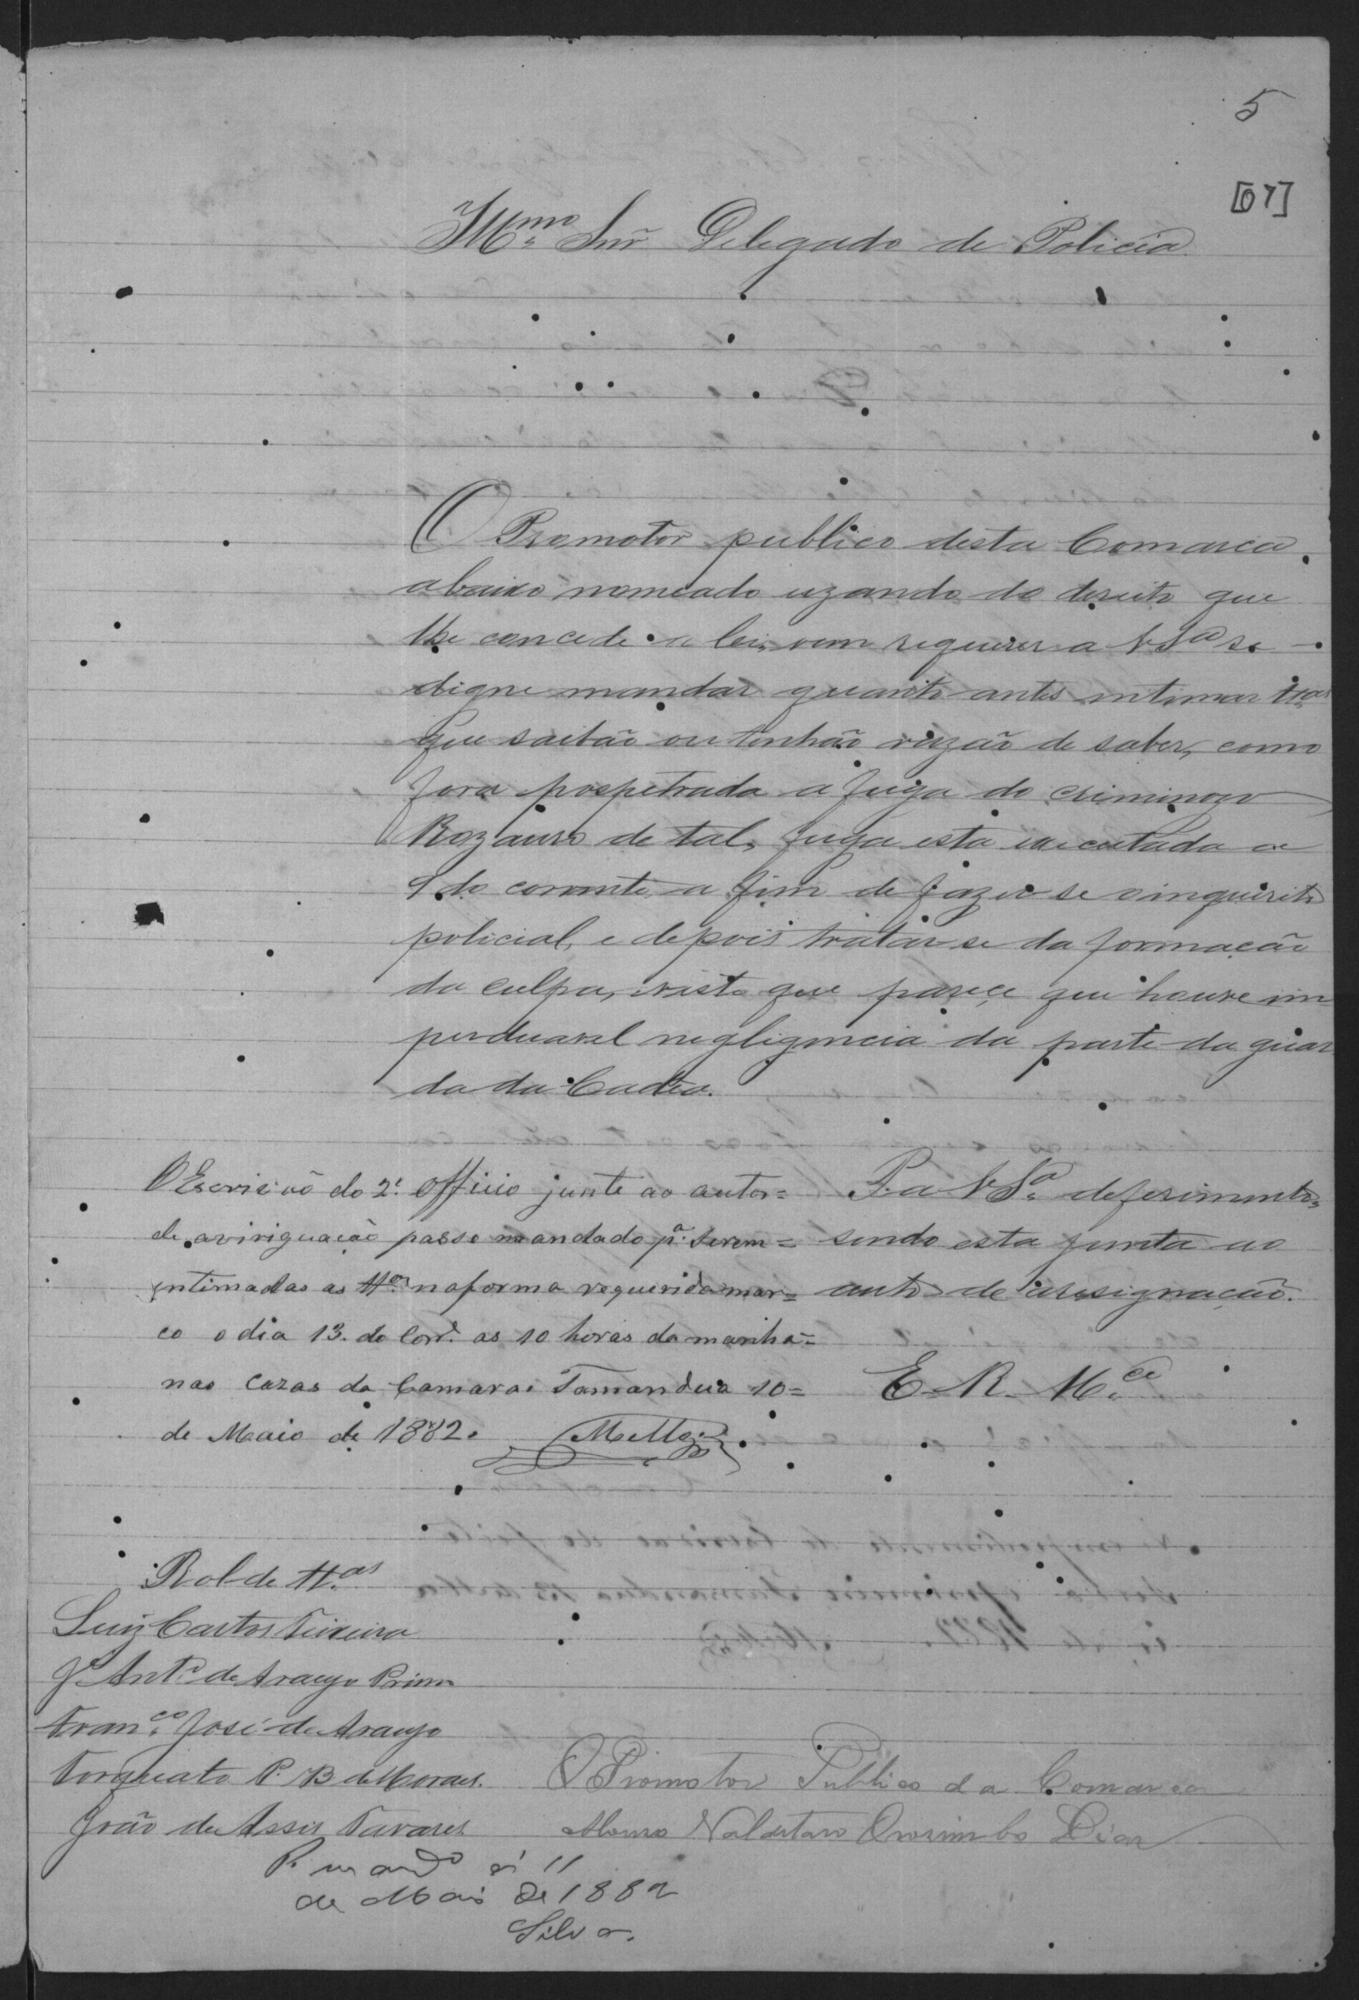 5
[07]
Illmo Snr Delegado de Policia
O Promotor publico desta Comarca
abaixo nomeado uzando do direito que
lhe concede a lei, vem requerer a VSa se
digne mandar quanto antes intimar ttas
que saibão ou tenhão razão de saber, como
fora perpetrada a fuga do criminozo
Rozauro de tal, fuga esta executada a
9 do corrente a fim de fazer-se o inquerito
policial, e depois tratar-se da formação
da culpa, visto que parece que houve im
perduavel negligencia da parte da guar
da da Cadea.
P. a VSa. deferimento,
sendo esta junta ao
auto de
E. R. Mce
O Escrivão do 2º. Officio junte ao autor=
de aviriguação passe mandado pª. serem=
intimadas as ttas na forma requerida mar=
co o dia 13. do Corre. as 10 horas da manha=
nas cazas da Camara. Tamandua 10=
de Maio de 1882. Mello
Rol de ttas
Luiz Carlos Teixeira
Je Anto de Araujo Primo
Franco José de Araujo
Torquato P. B de Moraes.
João de Assis Tavares
O Promotor Publico da Comarca
Dias
P. mando a 11
de Maio de 1882
Silva.